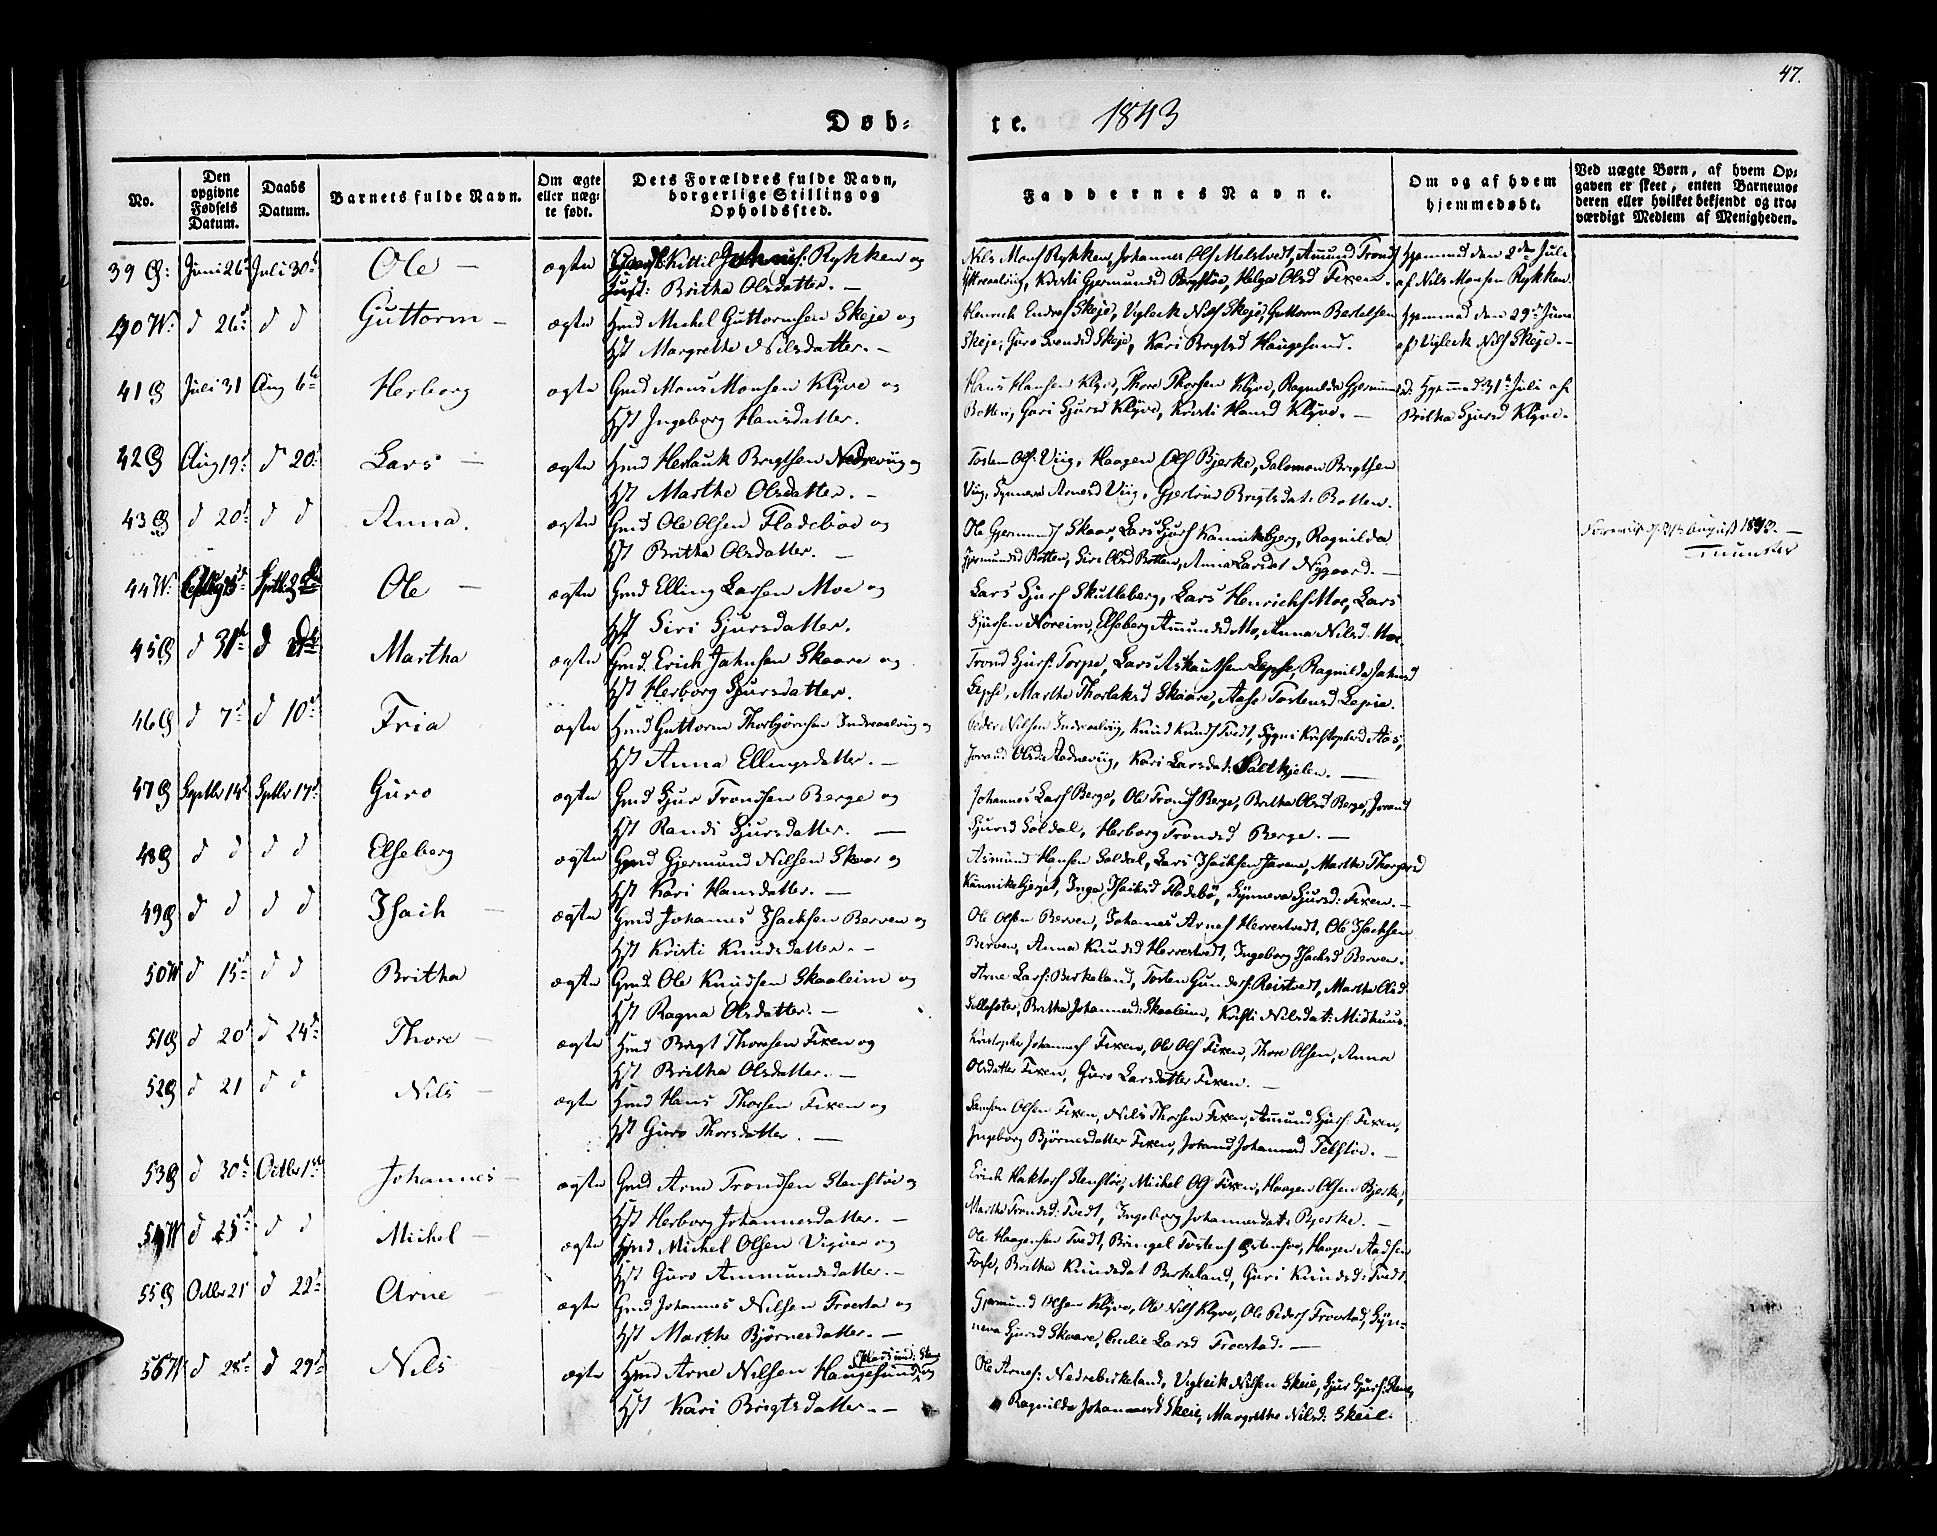 47.
Døb=
te. 1843
No.
Den opgivne Fødsels Datum.
Daabs Datum.
Barnets fulde Navn.
Om ægte eller uæg= te født.
Dets Forældres fulde Navn, borgerlige Stilling og Opholdssted.
Faddernes Navne.
Om og af hvem hjemmedøbt.
Ved uægte Børn, af hvem Op= gaven er skeet, enten Barnemo= deren eller hvilket bekjendt og tro= værdigt Medlem af Menigheden.
39 G: Juni 26 Juli 30 Ole — ægte Kittil Johnss: Rykken og
Britha Olsdatter. —
Nils Mons Rykken, Johannes Ols Melstvedt, Amund Trons
Kristi Gjermunds Helga Olsd Fixen.
Hjemmed den 2den Juli
af Nils Monsen Rykken.
40 W: d 26 d d Guttorm — ægte Hmd Michel Guttormsen Skeje og
Hst Margrethe Nilsdatter. —
Henrich Endres Skeje, Vigleck Nils Skeje, Guttorm Bertelsen
Skeje, Guro Svendsd Skeje, Kari Brigtsd Haugesund.
Hjemmed den 29de Juni
af Vigleck Nils Skeje. —
41 G Juli 31 Aug 6te Herborg ægte Gmd Mons Monsen Klyve og
Hst Ingeborg Hansdatter.
Hans Hansen Klyve, Thore Thorsen Klyve, Ragnilda Gjermunds
Botten, Guri Sjursd Klyve, Kristi Hansd Klyve. —
Hjemmed: 31te Juli af
Britha Sjursd Klyve.
42 G Aug 19 d 20 Lars — ægte Hmd Herlauk Brigtsen Nedrevig og
Hst Marthe Olsdatter. —
Tosten Ols: Viig, Haagen Ols Bjerke, Salomon Brigtsen
Viig, Synneva Arnesd Viig, Gjertrud Brigtsdat: Botten.
43 G d 20 d d Anna. ægte Gmd Ole Olsen Fladebøe og
Hst Britha Olsdatter. —
Ole Gjermunds Skaar, Lars Sjurs Kannikebjerg, Ragnilda
Gjermundsd Botten, Siri Olsd Botten, Anna Larsdat Nygaard. —
August 1843. —
Munster
44 W: Septbr 3 Ole — ægte Gmd Elling Larsen Moe og
Hst Siri Sjursdatter.
Lars Sjurs Skutleberg, Lars Henrichs Moe, Lars
Sjursen Noreim, Elseberg Amundsd Mo, Anna Nilsd: Moe
45 G d 31te d Martha ægte Gmd. Erich Johnsen Skaare og
Hst Herborg Sjursdatter.
Trond Sjurs: Torpe, Lars Askautsen Lepse, Ragnilda Johnsd
Lepse, Marthe Thorlaksd Skaare, Aase Tostensd Lepse.
46 G d 7 d 10 Fria ægte Hmd Guttorm Thorbjørnsen Indreaalvig og
Hst Anna Ellingsdatter. —
Peder Nilsen Indreaalvig, Knud Knuds Tvedt, Sygni Kristophersd Aas,
Jorand Olsd Kari Larsdat: Saltkjelen. —
47 G Septbr 14 Septbr 17 Guro ægte Gmd Sjur Trondsen Berge og
Hst Randi Sjursdatter. —
Johannes Lars Berge, Ole Tronds Berge, Britha Olsd Berge, Jorand
Sjursd Soldal, Herborg Trondsd Berge. —
48 G d d d d Elseberg ægte Gmd Gjermund Nilsen Skaar og
Hst Kari Hansdatter. —
Asmund Hansen Soldal, Lars Isacksen Marthe Thorgersd
Kannikebjerget, Inga Isacksd Fladebø, Synneva Sjursd: Fixen. —
49 G d d d d Isach — ægte Gmd Johannes Isachsen Berven og
Hst Kristi Knudsdatter. —
Ole Olsen Berven, Johannes Arnes Herrestvedt, Ole Isachsen
Berven, Anna Knudsd Herrestvedt, Ingeborg Isachsd Berven.
50 W d 15 d d Britha ægte Gmd. Ole Knudsen Skaaleim og
Hst Ragna Olsdatter. —
Arne Lars: Berkeland, Tosten Gunders: Reistvedt, Martha Olsd
Britha Johannesd: Skaaleim, Kristi Nilsdat: Midhuus.
51 G d 20 d 24 Thore — ægte Hmd Brigt Thoresen Fixen og
Hst Britha Olsdatter. —
Kristophe Johanness Fixen, Ole Ols Fixen, Thore Olsen, Anna
Olsdatter Fixen, Guro Larsdatter Fixen. —
52 G d 21 d d Nils — ægte Hmd Hans Thorsen Fixen og
Hst Guro Thorsdatter. —
Samson Olsen Fixen, Nils Thorsen Fixen, Amund Sjurs: Fixen,
Ingeborg Bjørnesdatter Fixen, Jorand Johannesd —
53 G d 30te Octbr 1ste Johannes — ægte Gmd Arne Trondsen Stenstøe og
Hst Herborg Johannesdatter. —
Erich Haktors Stenstøe, Michel Ols Fixen, Haagen Olsen Bjerke,
Marthe Trondsd: Tvedt, Ingeborg Johannesdat: Bjerke. —
54 W d 25 d d Michel — ægte Hmd Michel Olsen Vigøer og
Hst Guro Ammundsdatter. —
Ole Haagensen Tvedt, Bringel Tostens Østensøe, Haagen Aadsen
Britha Knudsdat Berkeland, Guri Knudsd: Tvedt.
55 G Octbr 21 d 22 Arne — ægte Gmd Johannes Nilsen Froestad og
Hst Marthe Bjørnesdatter. —
Gjermund Klyve, Ole Nils Klyve, Ole Peders Froestad, Syn=
neva Sjursd Skaare, Cecilie Larsd Froestad. —
56 W d 28 d 29 Nils ægte Hmd Arne Nilsen Haugesund og
Hst Kari Brigtsdatter. —
Ole Arnes: Nedrebirkeland, Vigleik Nilsen Skeie, Sjur Sjurs:
Ragnilda Johannesd Skeie, Margrethe Nilsd: Skeie.